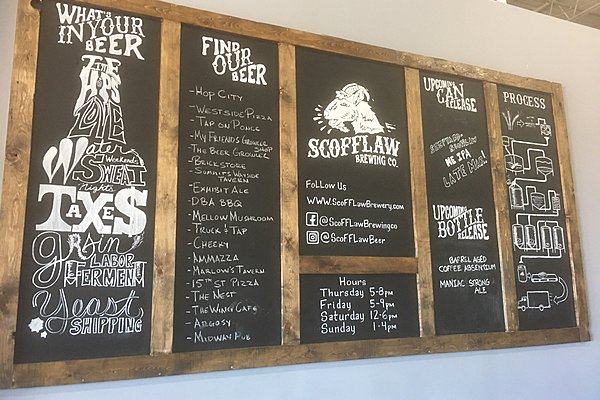 WHAT'S
IN YOUR
BEER
TIME
HOPS
LOVE
Water
Weekends
SWEAT
Nights
TAXES
Grain
LABOR
FERMENT
Yeast
SHIPPING
FIND
OUR
BEER
- HOP CITY
- WESTSIDE PIZZA
- TAP ON PONCE
- MY FRIENDS GROWLER SHOP
- THE BEER GROWLER
- BRICKSTORE
- SUMMITS WAYSIDE
TAVERN
- EXHIBIT ALE
- DBA BBQ
- MELLOW MUSHROOM
- TRUCK & TAP
- CHEEKY
- AMMAZZA
- MARLOW'S TAVERN
- 15TH ST PIZZA
- THE NEST
- THE WING CAFE
- ARGOSY
- MIDWAY PUB
SCOFFLAW
BREWING CO.
FOLLOW US
WWW.SCOFFLAWBREWERY.COM
@SCOFFLAWBREWINGCO
@SCOFFLAWBEER
HOURS
THURSDAY 5-8PM
FRIDAY 5-9PM
SATURDAY 12-6PM
SUNDAY 1-4PM
UPCOMING
CAN
RELEASE
NE IPA
LATE MAR!
UPCOMING
BOTTLE
RELEASE
BARREL AGED
COFFEE ABSENTIUM
MANIAC STRONG
ALE
PROCESS